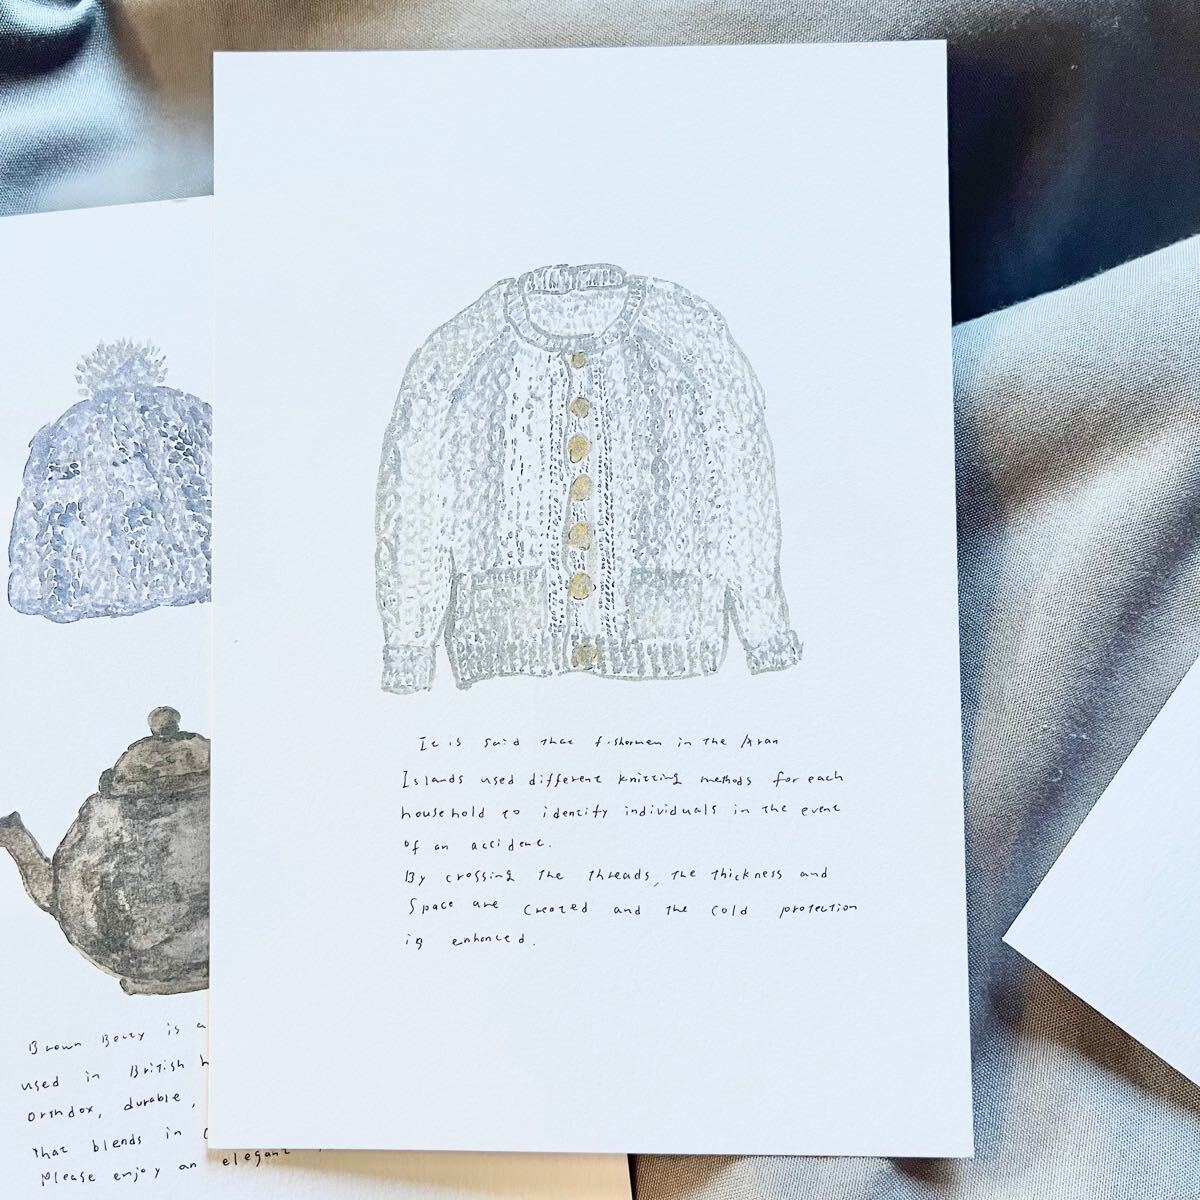 It is said that fishermen in the Aran
Islands used different knitting methods for each
household to identify individuals in the event
of an accident.
By crossing the threads, the thickness and
Space are created and the cold protection
is enhanced.
Brown Betty is a
used in British h
Orthdox, durable,
that blends in
Please enjoy an elegant